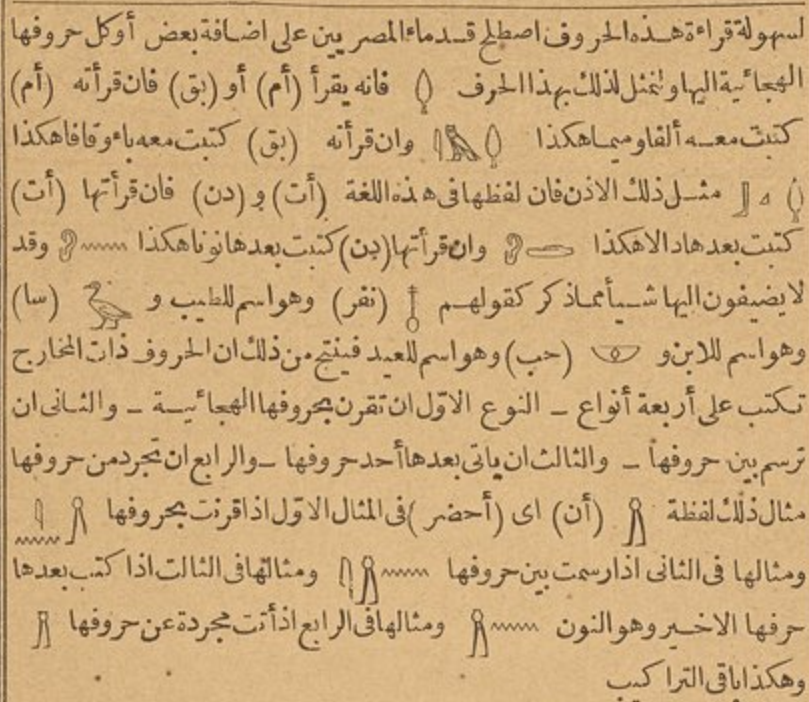 لسهولة قراءة هذه الحروف اصطلح قدماء المصريين على اضافة بعض أوكل حروفها
الهجائية اليها ولنمثل لذلك بهذا الحرف فانه يقرأ (أم) أو (بق) فان قرأته (أم)
كتبت معه ألفا وميما هكذا وان قرأته (بق) كتبت معه باء وقافا هكذا
مثل ذلك الاذن فان لفظها فى هذه اللغة (أت) و (دن) فان قرأتها (أت)
كتبت بعدها دالا هكذا وان قرأتها (دن) كتبت بعدها نونا هكذا وقد
لا يضيفون اليها شيأ مماذكر كقولهم (نفر) وهو اسم للطيب و (سا)
وهو اسم للابن و (حب) وهو اسم للعيد فينتج من ذلك ان الحروف ذات المخارج
تكتب على أربعة أنواع ـ النوع الاوّل ان تقرن بحروفها الهجائية ـ والثانى ان
ترسم بين حروفها ـ والثالث ان ياتى بعدها أحد حروفها ـ والرابع ان تجرد من حروفها
مثال ذلك لفظة (أن) اى (أحضر) فى المثال الاوّل اذا قرنت بحروفها
ومثالها فى الثانى اذا رسمت بين حروفها ومثالها فى الثالث اذا كتب بعدها
حرفها الاخير وهو النون ومثالها فى الرابع اذ أتت مجردة عن حروفها
وهكذا باقى التراكيب